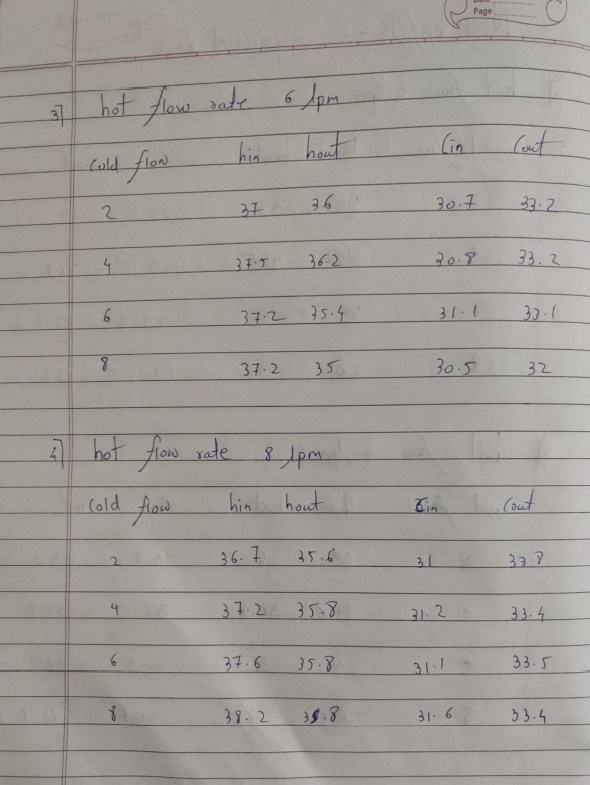 Page
3] hot flow rate 6 lpm
cold flow hin hout Cin Cout
2 37 36 30.7 33.2
4 37.5 36.2 30.8 33.2
6 37.2 35.4 31.1 33.1
8 37.2 35 30.5 32
4] hot flow rate 8 lpm
cold flow hin hout Cin Cout
2 36.7 35.6 31 33.8
4 37.2 35.8 31.2 33.4
6 37.6 35.8 31.1 33.5
8 38.2 35.8 31.6 33.4